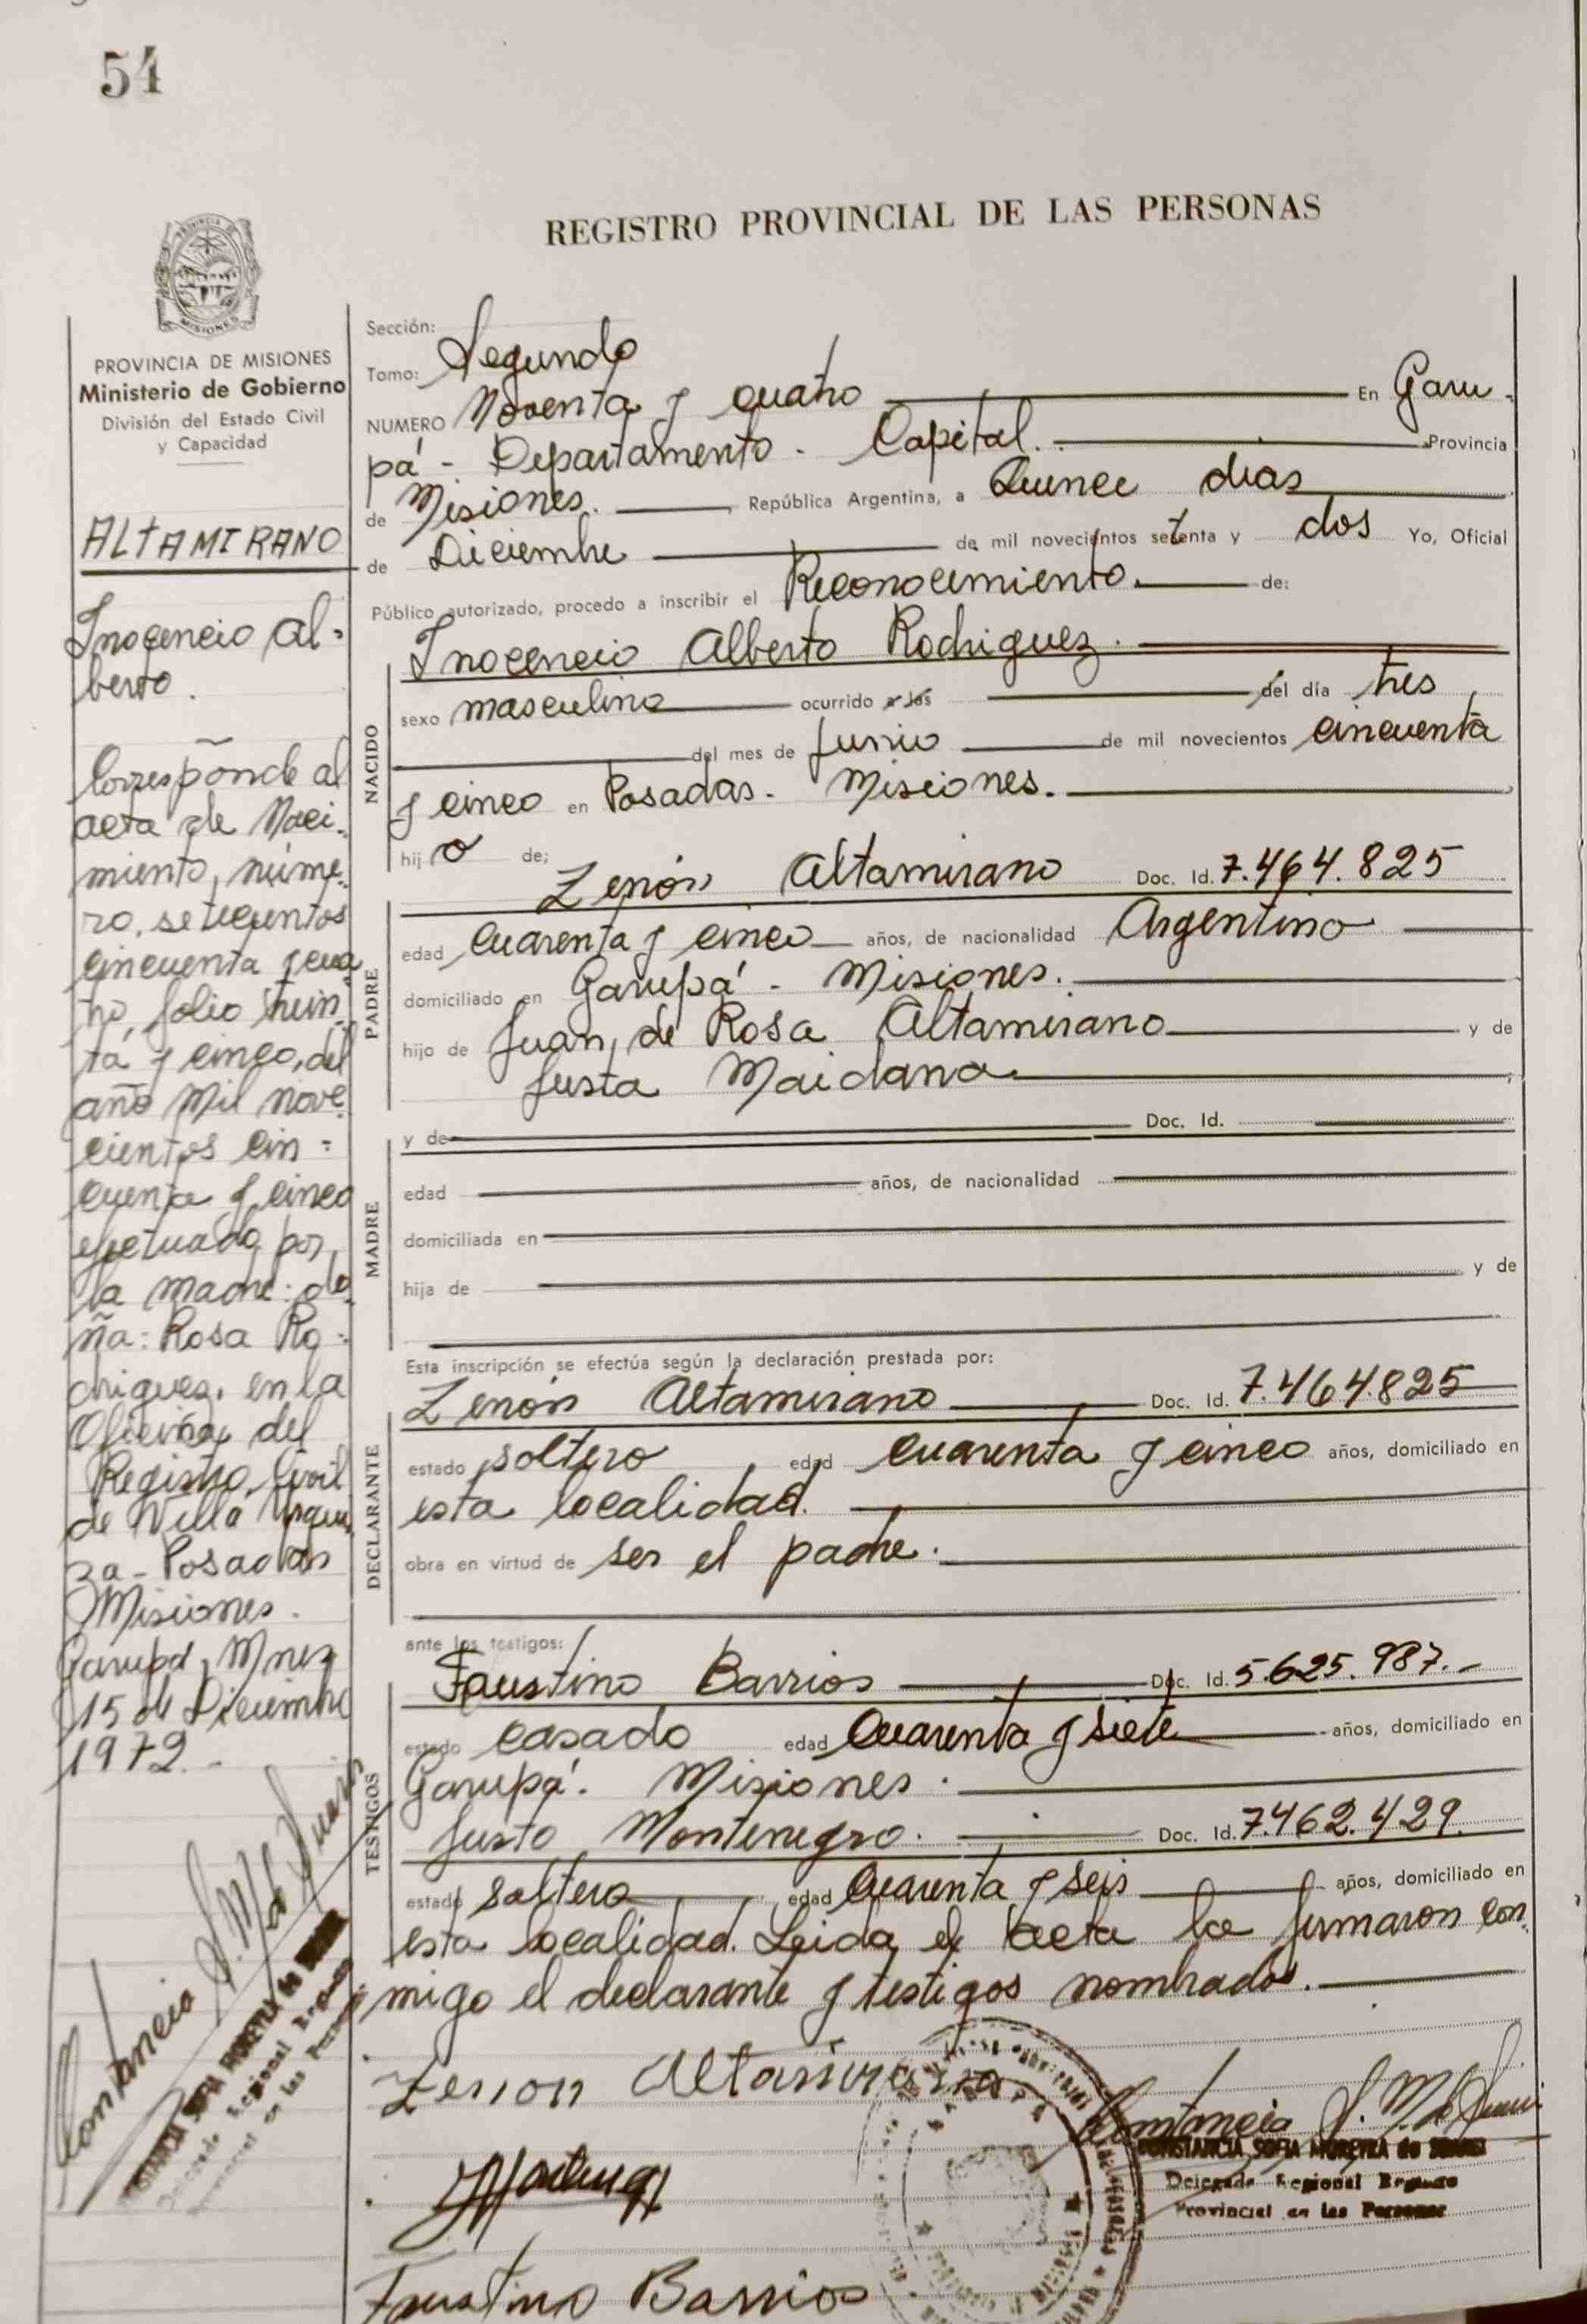 54
REGISTRO PROVINCIAL DE LAS PERSONAS
MISIONES
PROVINCIA DE MISIONES
Ministerio de Gobierno
División del Estado Civil
y Capacidad
ALTAMIRANO
Inocencio Al-
berto.
Corresponde al
acta de Naci-
miento, núme-
ro, setecientos
cincuenta y cua
tro, folio trein
ta y cinco, del
año Mil nove
cientos cin=
cuenta y cinco
efectuado por
la madre: do
ña: Rosa Ro-
driguez, en la
Oficina del
Registro Civil
de Villa Urqui
za - Posadas
Misiones.
Garupá, Mnes
15 de Diciembre
1972.-
Sección:
Tomo: Segundo
NUMERO Noventa y cuatro En Garu-
pá - Departamento - Capital. Provincia
de Misiones. República Argentina, a Quince dias
de Diciembre de mil novecientos setenta y dos Yo, Oficial
Público autorizado, procedo a inscribir el Reconocimiento. de:
NACIDO
Inocencio Alberto Rodriguez.
sexo masculino ocurrido a las del día tres
del mes de Junio de mil novecientos cincuenta
y cinco en Posadas - Misiones.
hijo de:
PADRE
Zenón Altamirano Doc. Id. 7.464.825
edad Cuarenta y cinco años, de nacionalidad Argentino
domiciliado en Garupá - Misiones.
hijo de Juan de Rosa Altamirano y de
Justa Maidana
MADRE
y de Doc. Id.
edad años, de nacionalidad
domiciliada en
hija de y de
Esta inscripción se efectúa según la declaración prestada por:
DECLARANTE
Zenón Altamirano Doc. Id. 7.464.825
estado soltero edad Cuarenta y cinco años, domiciliado en
esta localidad.
obra en virtud de ser el padre.
ante los testigos:
TESTIGOS
Faustino Barrios Doc. Id. 5.625.987.-
estado casado edad Cuarenta y siete años, domiciliado en
Garupá. Misiones.
Justo Montenegro. Doc. Id. 7.462.429.
estado Soltero edad Cuarenta y seis años, domiciliado en
esta localidad. Leida el acta la firmaron con
migo el declarante y testigos nombrados.
Zenon Altamirano
Constancia S. M. de
CONSTANCIA SOFIA MOREYRA de
Delegada Regional
Provincial en las Personas
Faustino Barrios
Constancia S. M. de
CONSTANCIA SOFIA MOREYRA de
Delegada Regional
Provincial en las